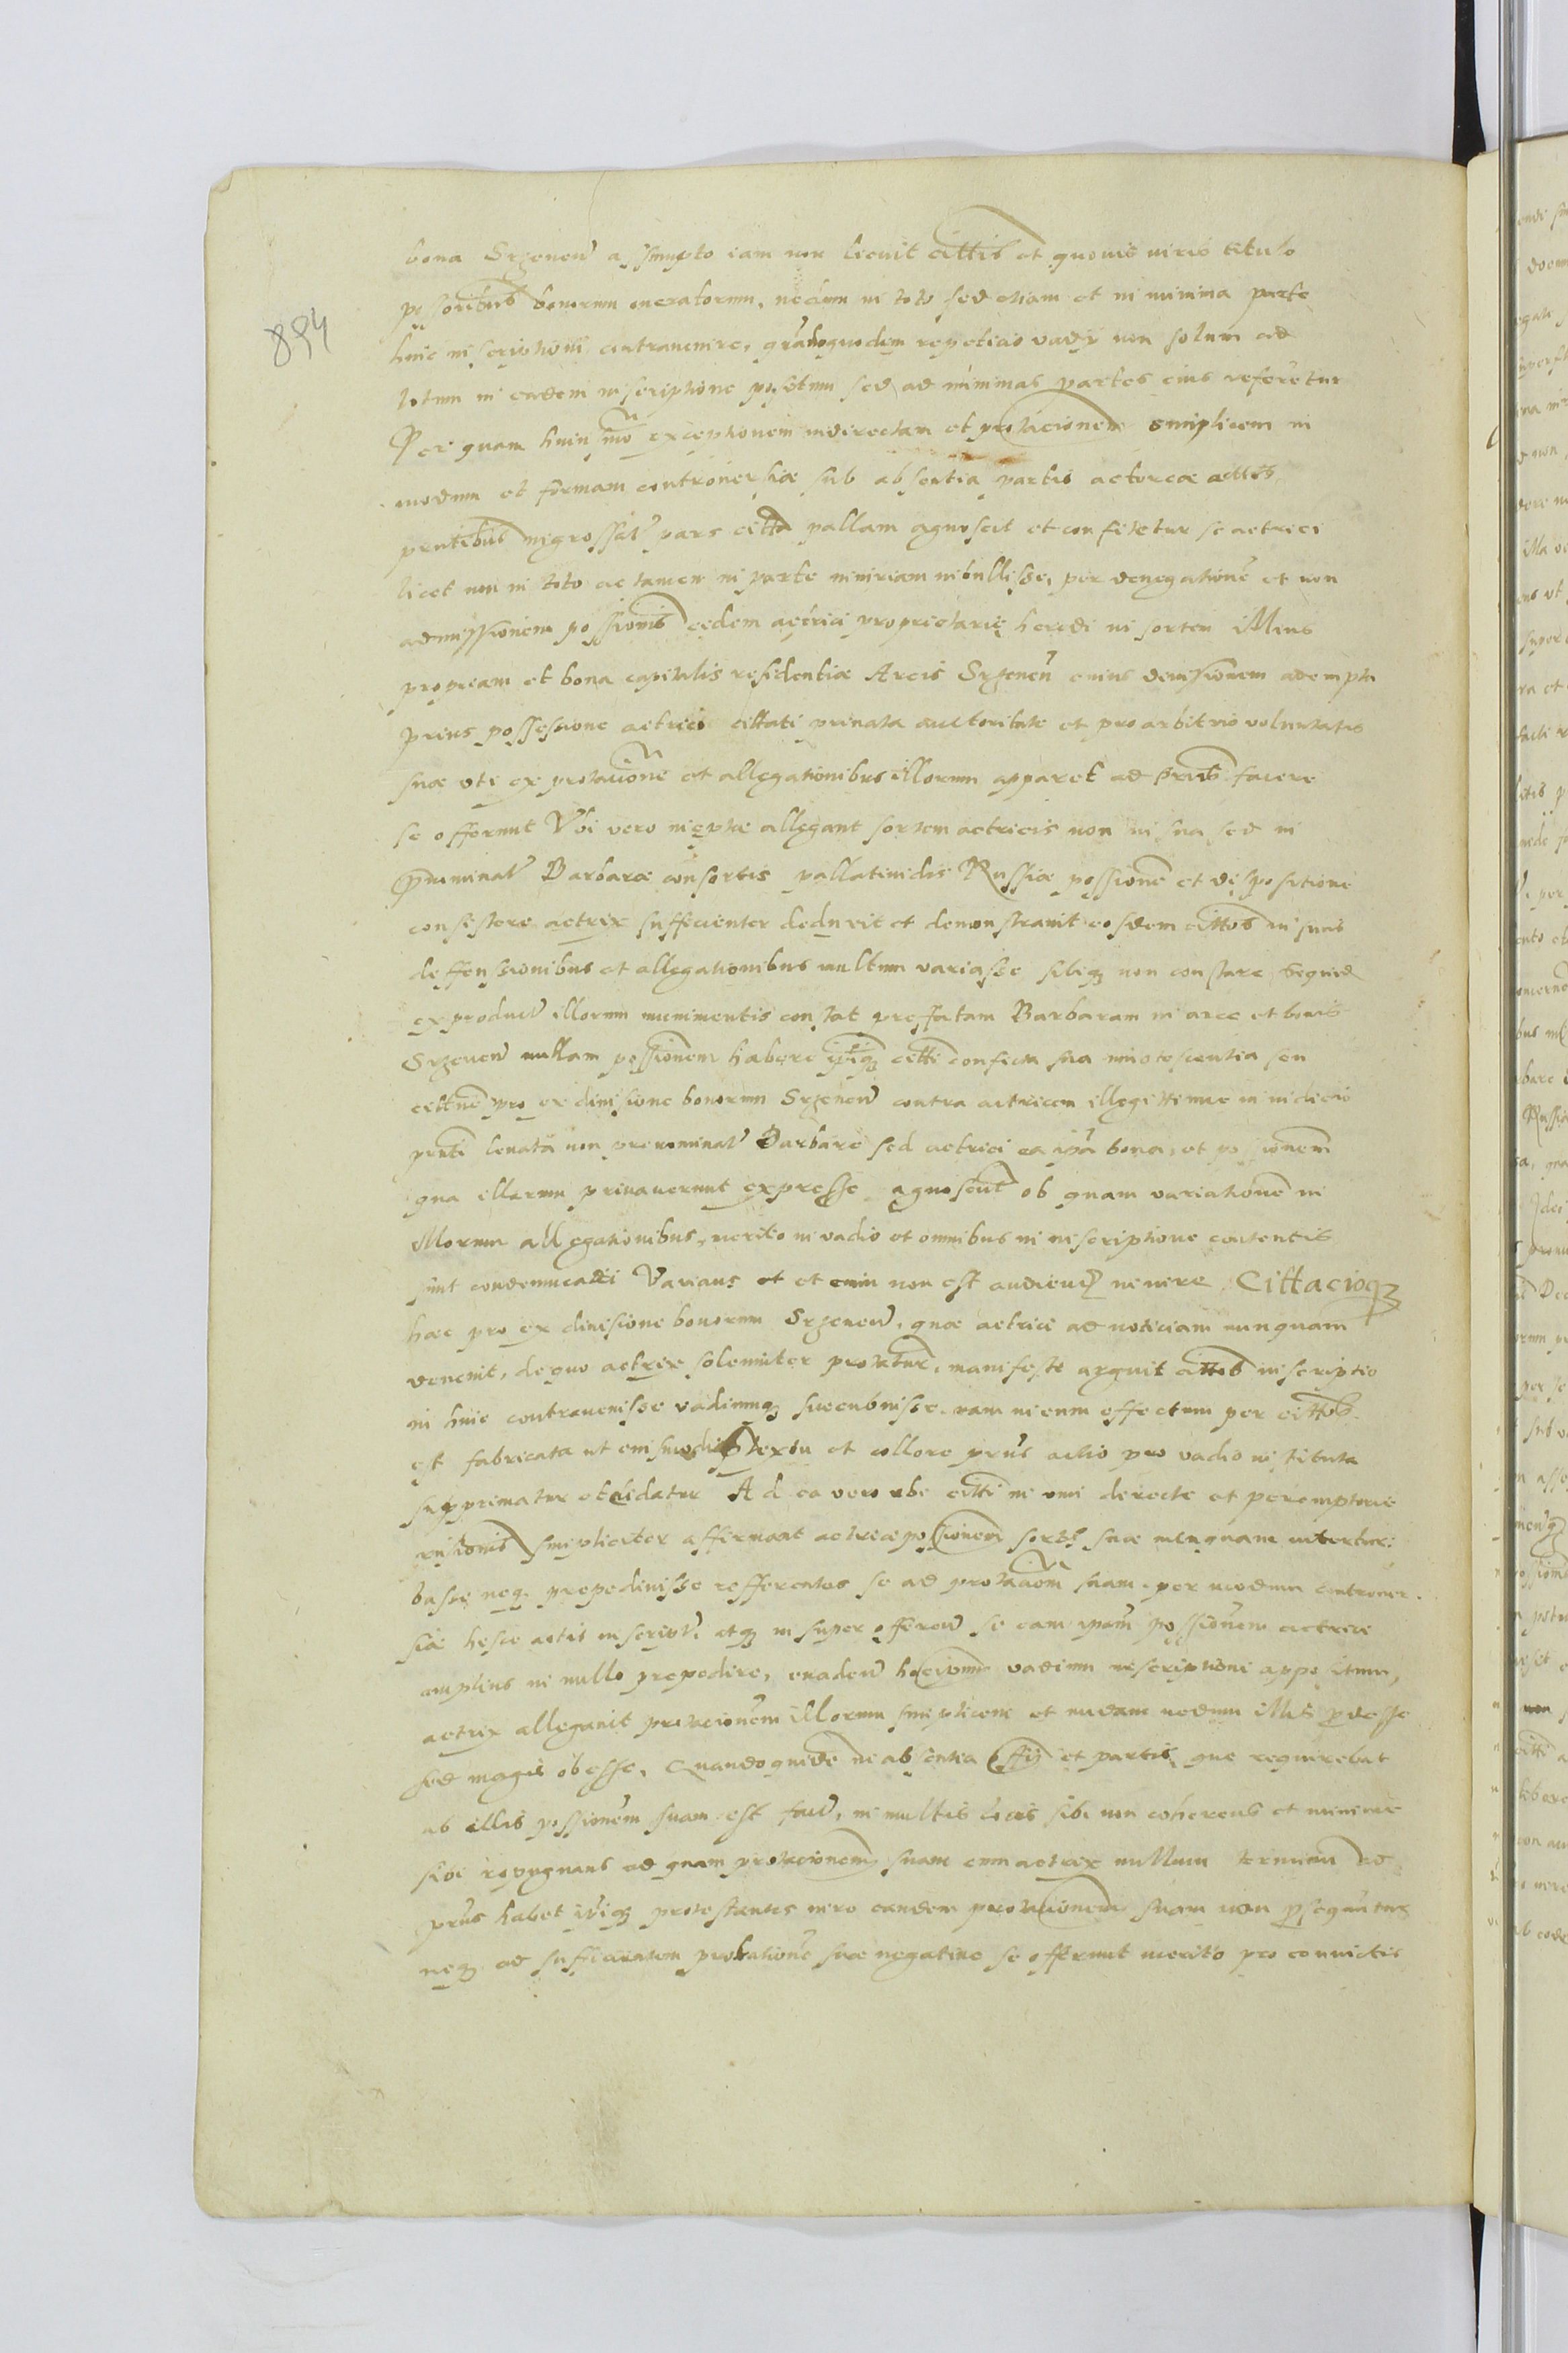 bona Srzenen̄ assumpto iam non licuit cittis et quovis iuris titulo
possoribus bonorum oneratorum, nedum in toto sed etiam et in minima parte
huic inscriptioni contravenire, quandoquidem repeticio vadij non solum ad
totum in eadem inscriptione positum sed ad minimas partes eius referetur
Per quam huiusmo exceptionem indirectam et protacionem simplicem in
modum et formam controversiae sub absentia partis actoreae actis
prntibus ingrossat pars citta pallam agnoscit et confitetur se actrici
licet non in toto ac tamen in parte iniuriam intullisse, per denegatione et non
admissionem possionis eedem actrici proprietarie heredi in sortem illius
propream et bona capitalis residentiae Arcis Srzenen cuius devisionem adempta
prius possessione actrici cittati privata auctoritate et pro arbitrio voluntatis
suae uti ex protacione et allegationibus illorum apparet ad prns facere
se offerunt Ubi vero inepte allegant sortem actricis non in sua sed in
prenominat Barbarae consortis pallatinidis Russiae possione et dispositione
consistere actrix sufficienter deduxit et demonstravit eosdem cittos in suis
deffensionibus et allegationibus multum variasse sibiq non constare siquid
ex produt illorum munimentis constat preffatam Barbaram in arce et bonis
Srzenen nullam possionem habere ipiq citti confecta sua innotescentia seu
cittne pro ex divisione bonorum Srzenen contra actricem illegittime in iudicio
prnti levata non prenominat Barbare sed actrici ea ipa bona, et possionem
qua illarum privaverunt expresse agnoscut ob quam variationem in
illorum allegationibus, merito in vadio et omnibus in inscriptione contentis
sint condemnandi Varians et et enim non est audiend in iure Cittacioq
haec pro ex divisione bonorum Srzenen, quae actrici ad noticiam nunquam
venenit, de quo actrix solemniter protatur, manifeste arguit cittos inscriptio
ni huic contravenisse vadiumq succubuisse, nam in eum effectum per cittos
est fabricata ut eiusmodi ptextu et collore prns actio pro vadio instituta
supprimatur et elidatur Ad ea vero ubi citti in vim directe et peremptorie
simpliciter affirmant actricae possionem sortis suae nunquam intertur:
basse neq prepedivisse refferentes se ad protacom suam per modum controver
siae hesce actis inscript, atq insuper offeren se eam ipam possionem actrici
amplius in nullo prepedire, evaden hocipm vadium inscriptioni appositum,
actrix allegavit protacionem illorum simplicem et nudam nedum illis pdesse
sed magis obesse, Quandoquide in absentia offij et partis, que requirebat
ab illis possionem suam est fact, in multis locis sibi non coherens et minime
sibi repugnans ad quam protacionem suam cum actrix nullum terminu ad
prns habet ipiq protestantes vero eandem protacionem suam non psequntur
neq ad sufficientem probatione suae negativae se offerunt merito pro convictis